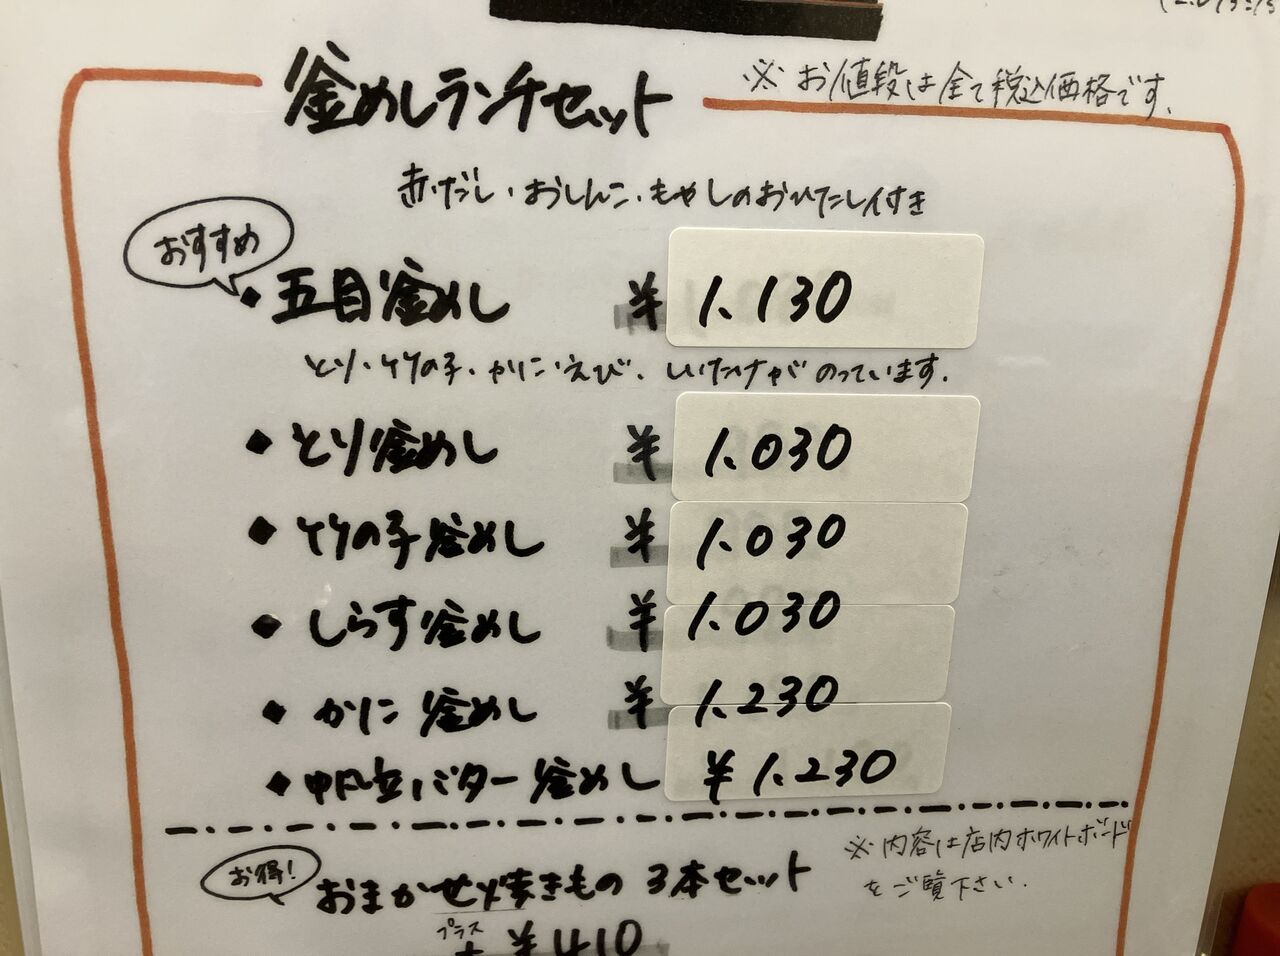 釜めしランチセット
※お値段は全て税込価格です。
赤だし・おしんこ・もやしのおひたし付き
おすすめ
・五目釜めし ¥1.130
とり・竹の子・かに・えび・しいたけがのっています。
◆とり釜めし ¥1.030
◆竹の子釜めし ¥1.030
◆しらす釜めし ¥1.030
◆かに釜めし ¥1.230
◆帆立バター釜めし ¥1.230
お得!
おまかせ焼きもの3本セット
※内容は店内ホワイトボード
をご覧下さい.
プラス
+¥410